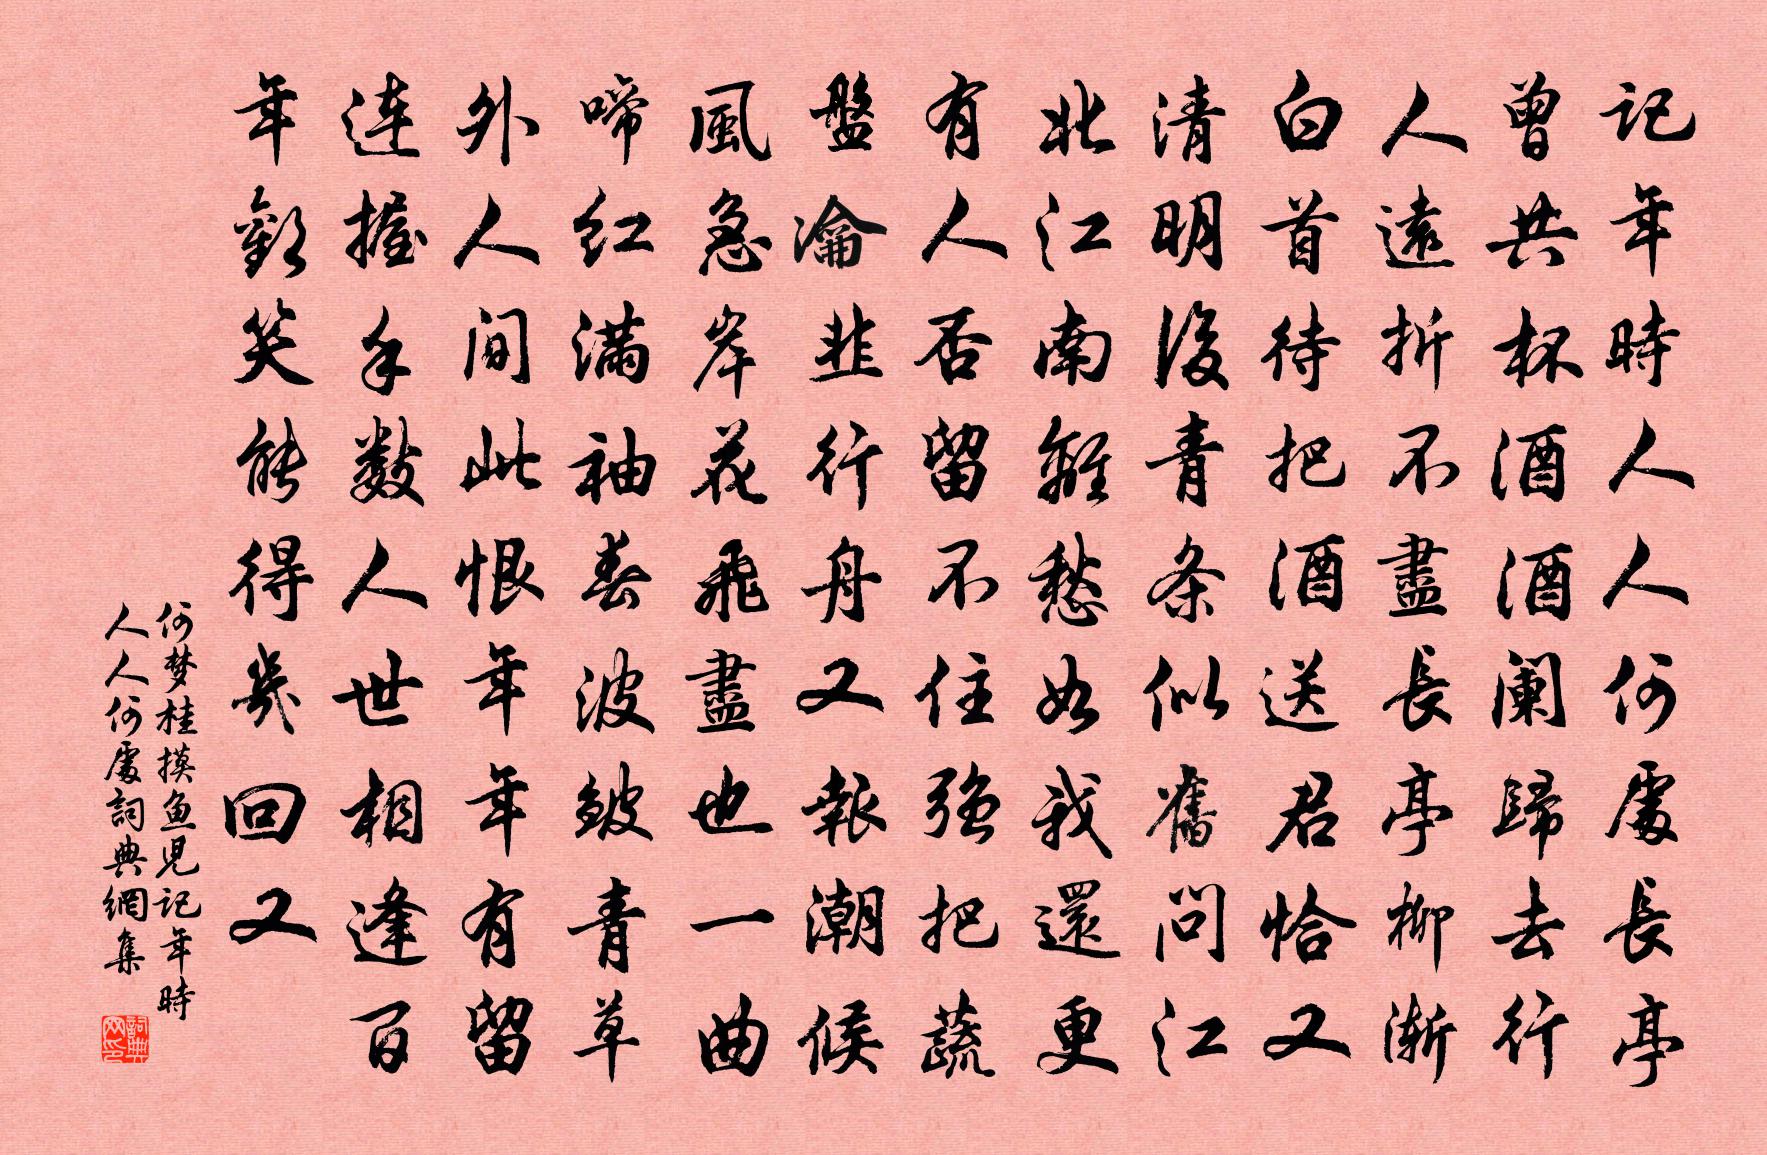 記年時人人何處長亭
曾共杯酒酒闌歸去行
人遠折不盡長亭柳漸
白首待把酒送君恰又
清明後青条似舊問江
北江南離愁如我還更
有人否留不住強把蔬
盤瀹韭行舟又報潮候
風急岸花飛盡也一曲
啼紅滿袖春波皺青草
外人间此恨年年有留
連握手數人世相逢百
年歡笑能得幾回又
何梦桂摸魚兒記年時
人人何處詞典網集
詞典网印